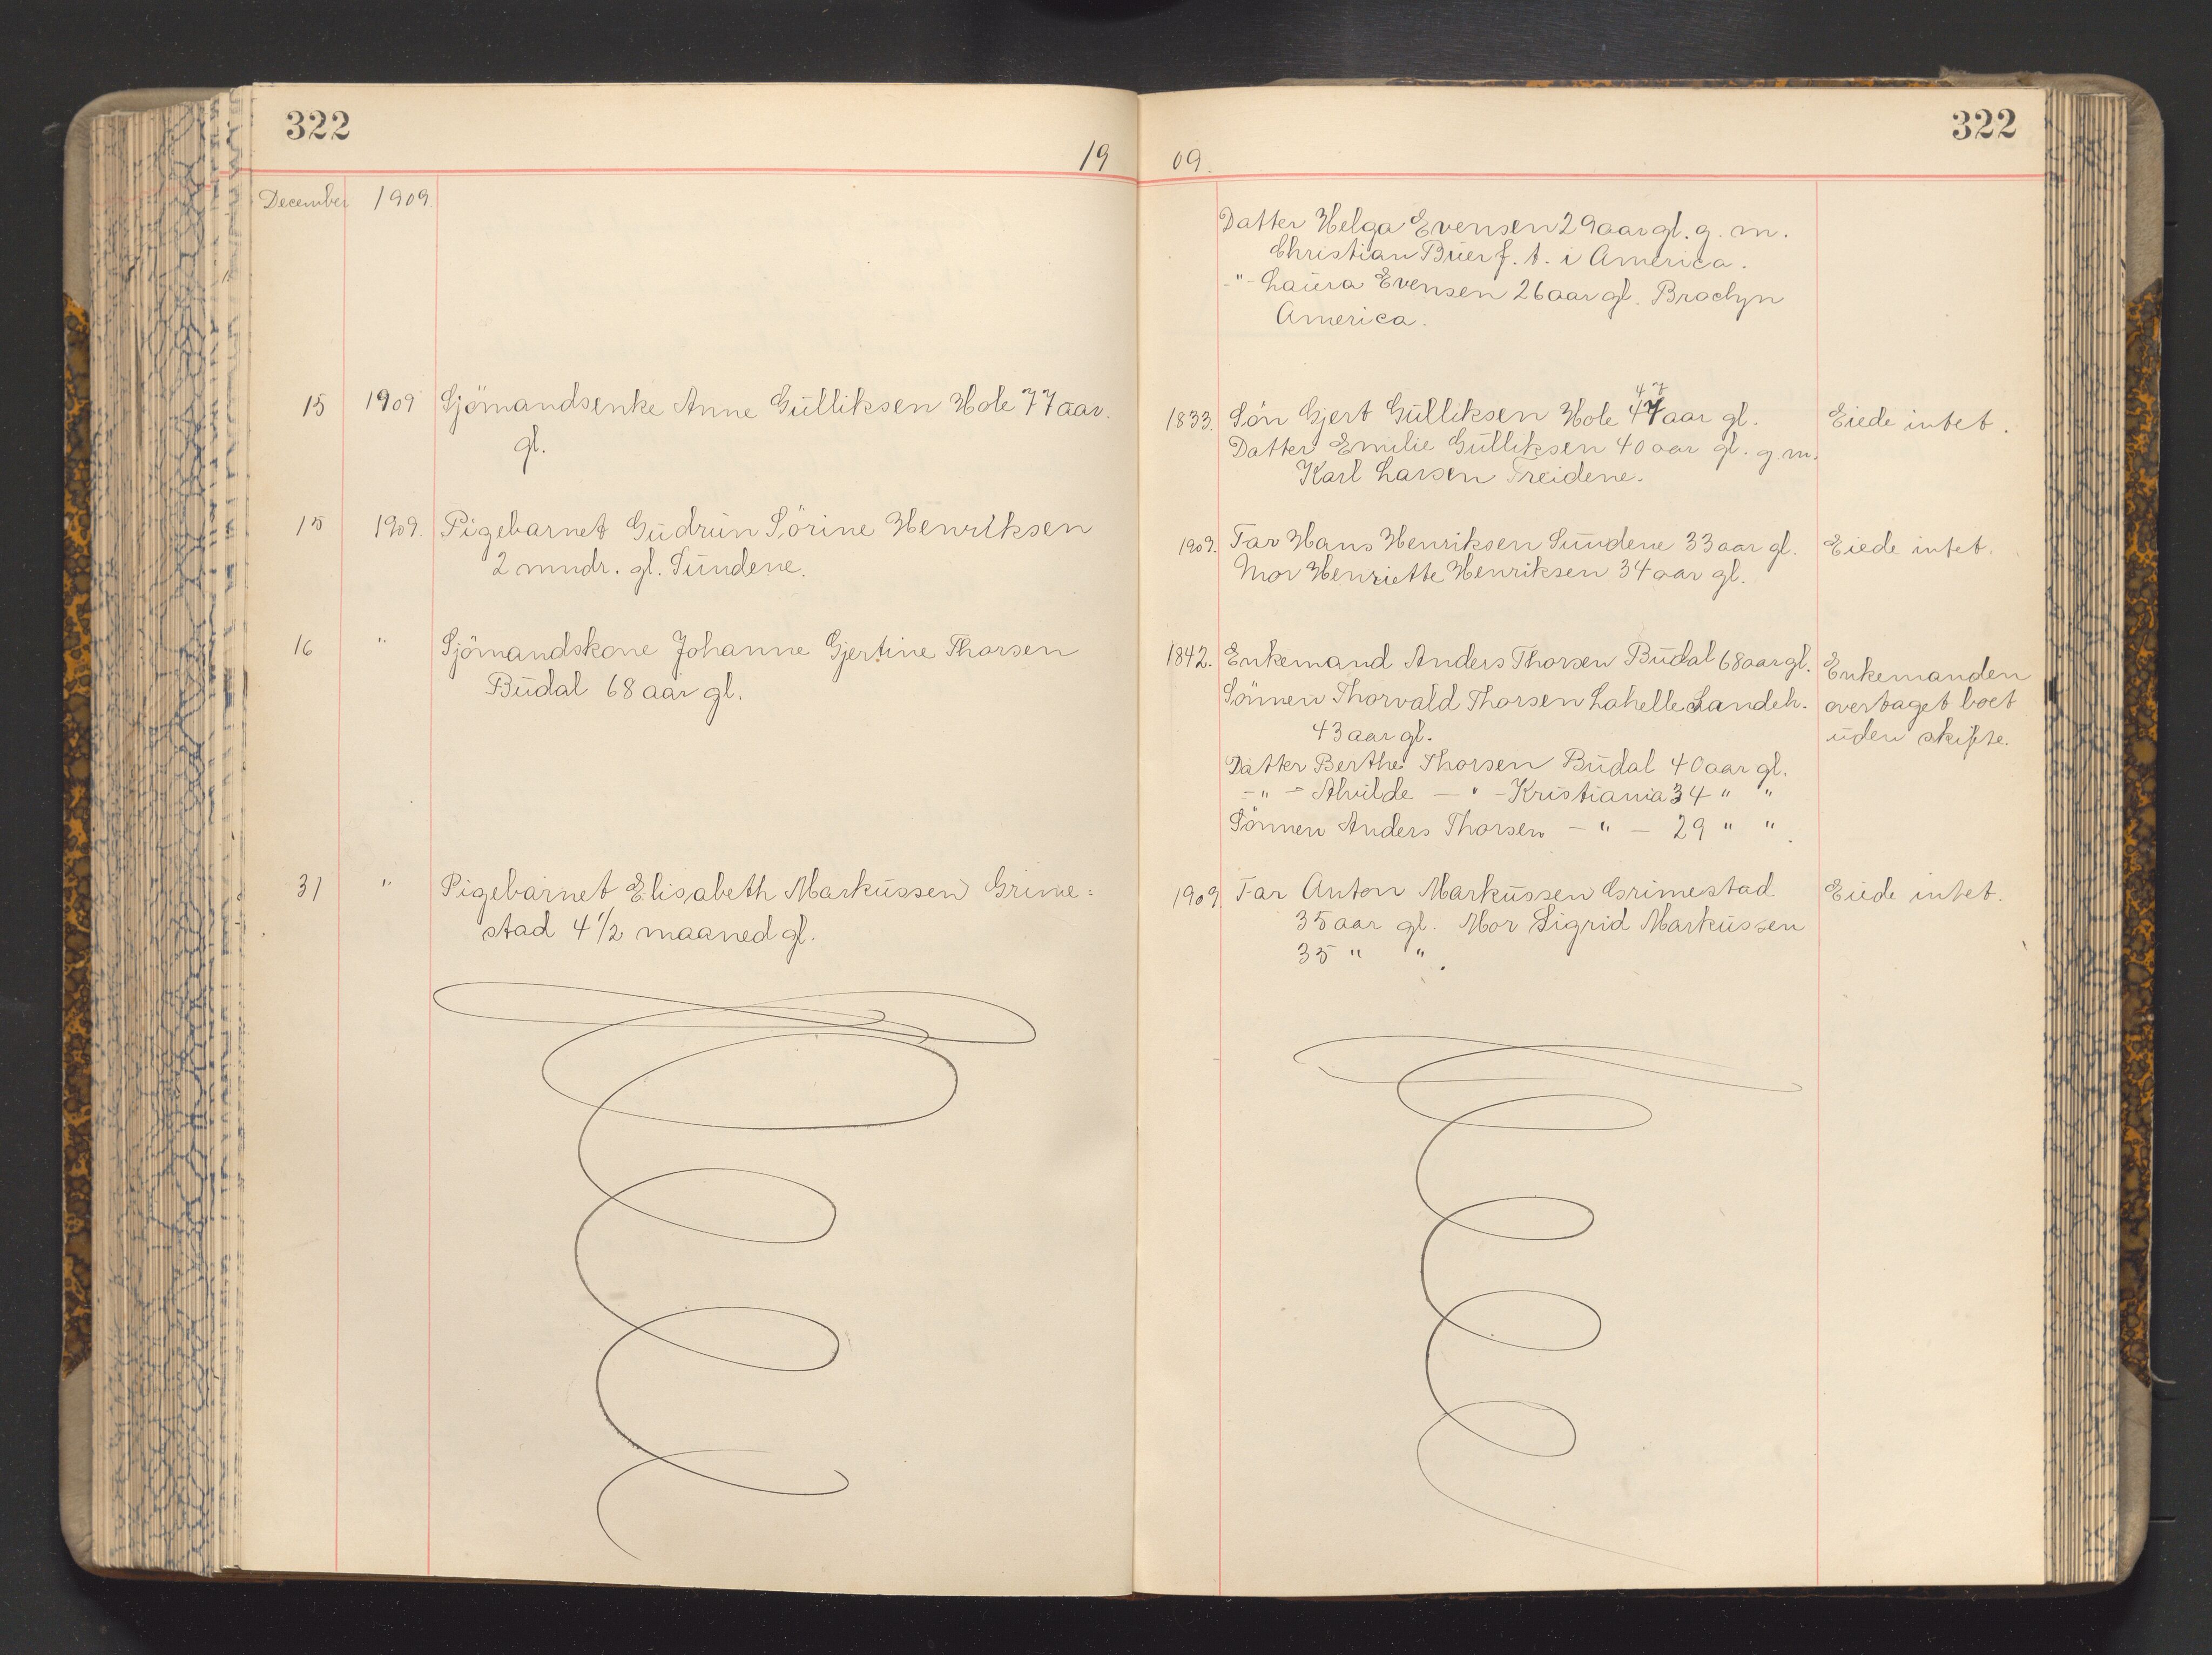 322
19
December 1909.
15 1909 Sjömandsenke Anne Gulliksen Hole 77 aar.
gl.
15 1909. Pigebarnet Gudrun Sörine Henriksen
2 mndr. gl. Sundene.
16 " Sjömandskone Johanne Gjertine Thorsen
Budal 68 aar gl.
31 " Pigebarnet Elisabeth Markussen Grime=
stad 4 1/2 maaned gl.
322
09.
Datter Helga Evensen 29 aar gl. g. m.
Christian Buer f. t. i America.
-"- Laura Evensen 26 aar gl. Broclyn
America.
47
1833. Sön Gjert Gulliksen Hole 47 aar gl. Eiede intet.
Datter Emilie Gulliksen 40 aar gl. g. m.
Karl Larsen Treidene.
1909. Far Hans Henriksen Sundene 33 aar gl. Eiede intet.
Mor Henriette Henriksen 34 aar gl.
1842. Enkemand Anders Thorsen Budal 68 aar gl. Enkemanden
Sönnen Thorvald Thorsen Lahelle Landeh. overtaget boet
43 aar gl. uden skifte.
Datter Berthe Thorsen Budal 40 aar gl.
-"- Alvilde -"- Kristiania 34 " "
Sönnen Anders Thorsen -"- 29 " ".
1909. Far Anton Markussen Grimestad Eiede intet.
35 aar gl. Mor Sigrid Markussen
35 " ".